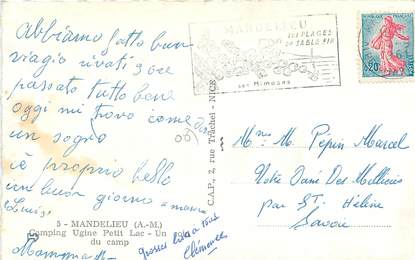 Abbiamo fatto bun
viagio rivati 3 ore
passato tutto bene
oggi mi trovo come
un sogno
è proprio bello
un buon giorno
Luis
5 - MANDELIEU (A.-M.)
Camping Ugine Petit Lac - Un
du camp
C.A.P., 2, rue Trachel - NICE
MANDELIEU
SES PLAGES
DE SABLE FIN
SES MIMOSAS
0,20
Mme M. Pépin Marcel
Notre Dame Des Millières
par St Hélène
Savoie
Grosses bises a tous
Clémence